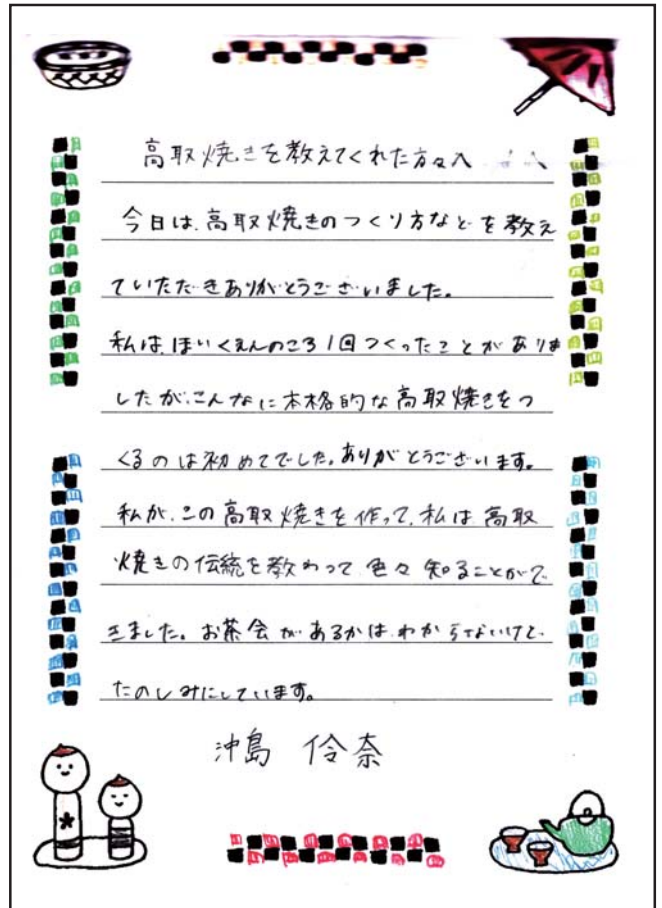 高取焼きを教えてくれた方々へ
今日は、高取焼きのつくり方などを教え
ていただきありがとうございました。
私は、ほいくえんのころ1回つくったことがありま
したが、こんなに本格的な高取焼きをつ
くるのは初めてでした。ありがとうございます。
私が、この高取焼きを作って、私は高取
焼きの伝統を教わって色々知ることがで
きました。お茶会があるかは、わからないけど、
たのしみにしています。
沖島 伶奈